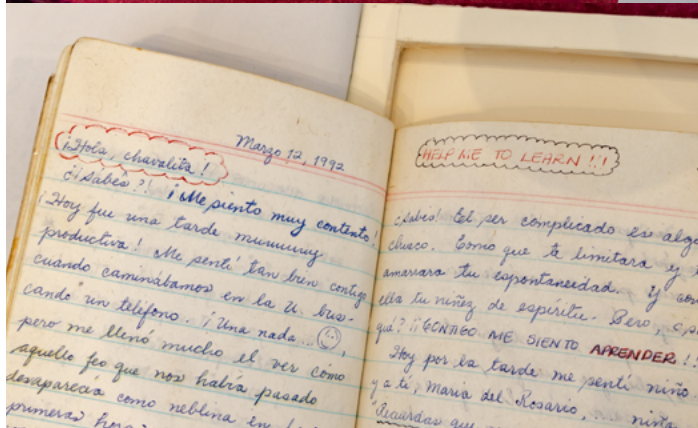 Marzo 12, 1992
¡Hola, chavalita!
¿¡Sabés?! ¡Me siento muy contento!
¡Hoy fue una tarde muuuuuy
productiva! Me sentí tan bien contigo
cuando caminábamos en la U bus-
cando un teléfono. ¡Una nada...
pero me llenó mucho el ver cómo
aquello feo que nos había pasado
desaparecía como neblina en
primeras
HELP ME TO LEARN!!!
¿Sabés! El ser complicado es algo
chueco. Como que te limitara y
amarrara tu espontaneidad. Y con
ella tu niñez de espíritu. Pero,
qué? ¡¡CONTIGO ME SIENTO APRENDER!!
Hoy por la tarde me sentí niño
y a ti, María del Rosario, ... niña
"Recuerdas que